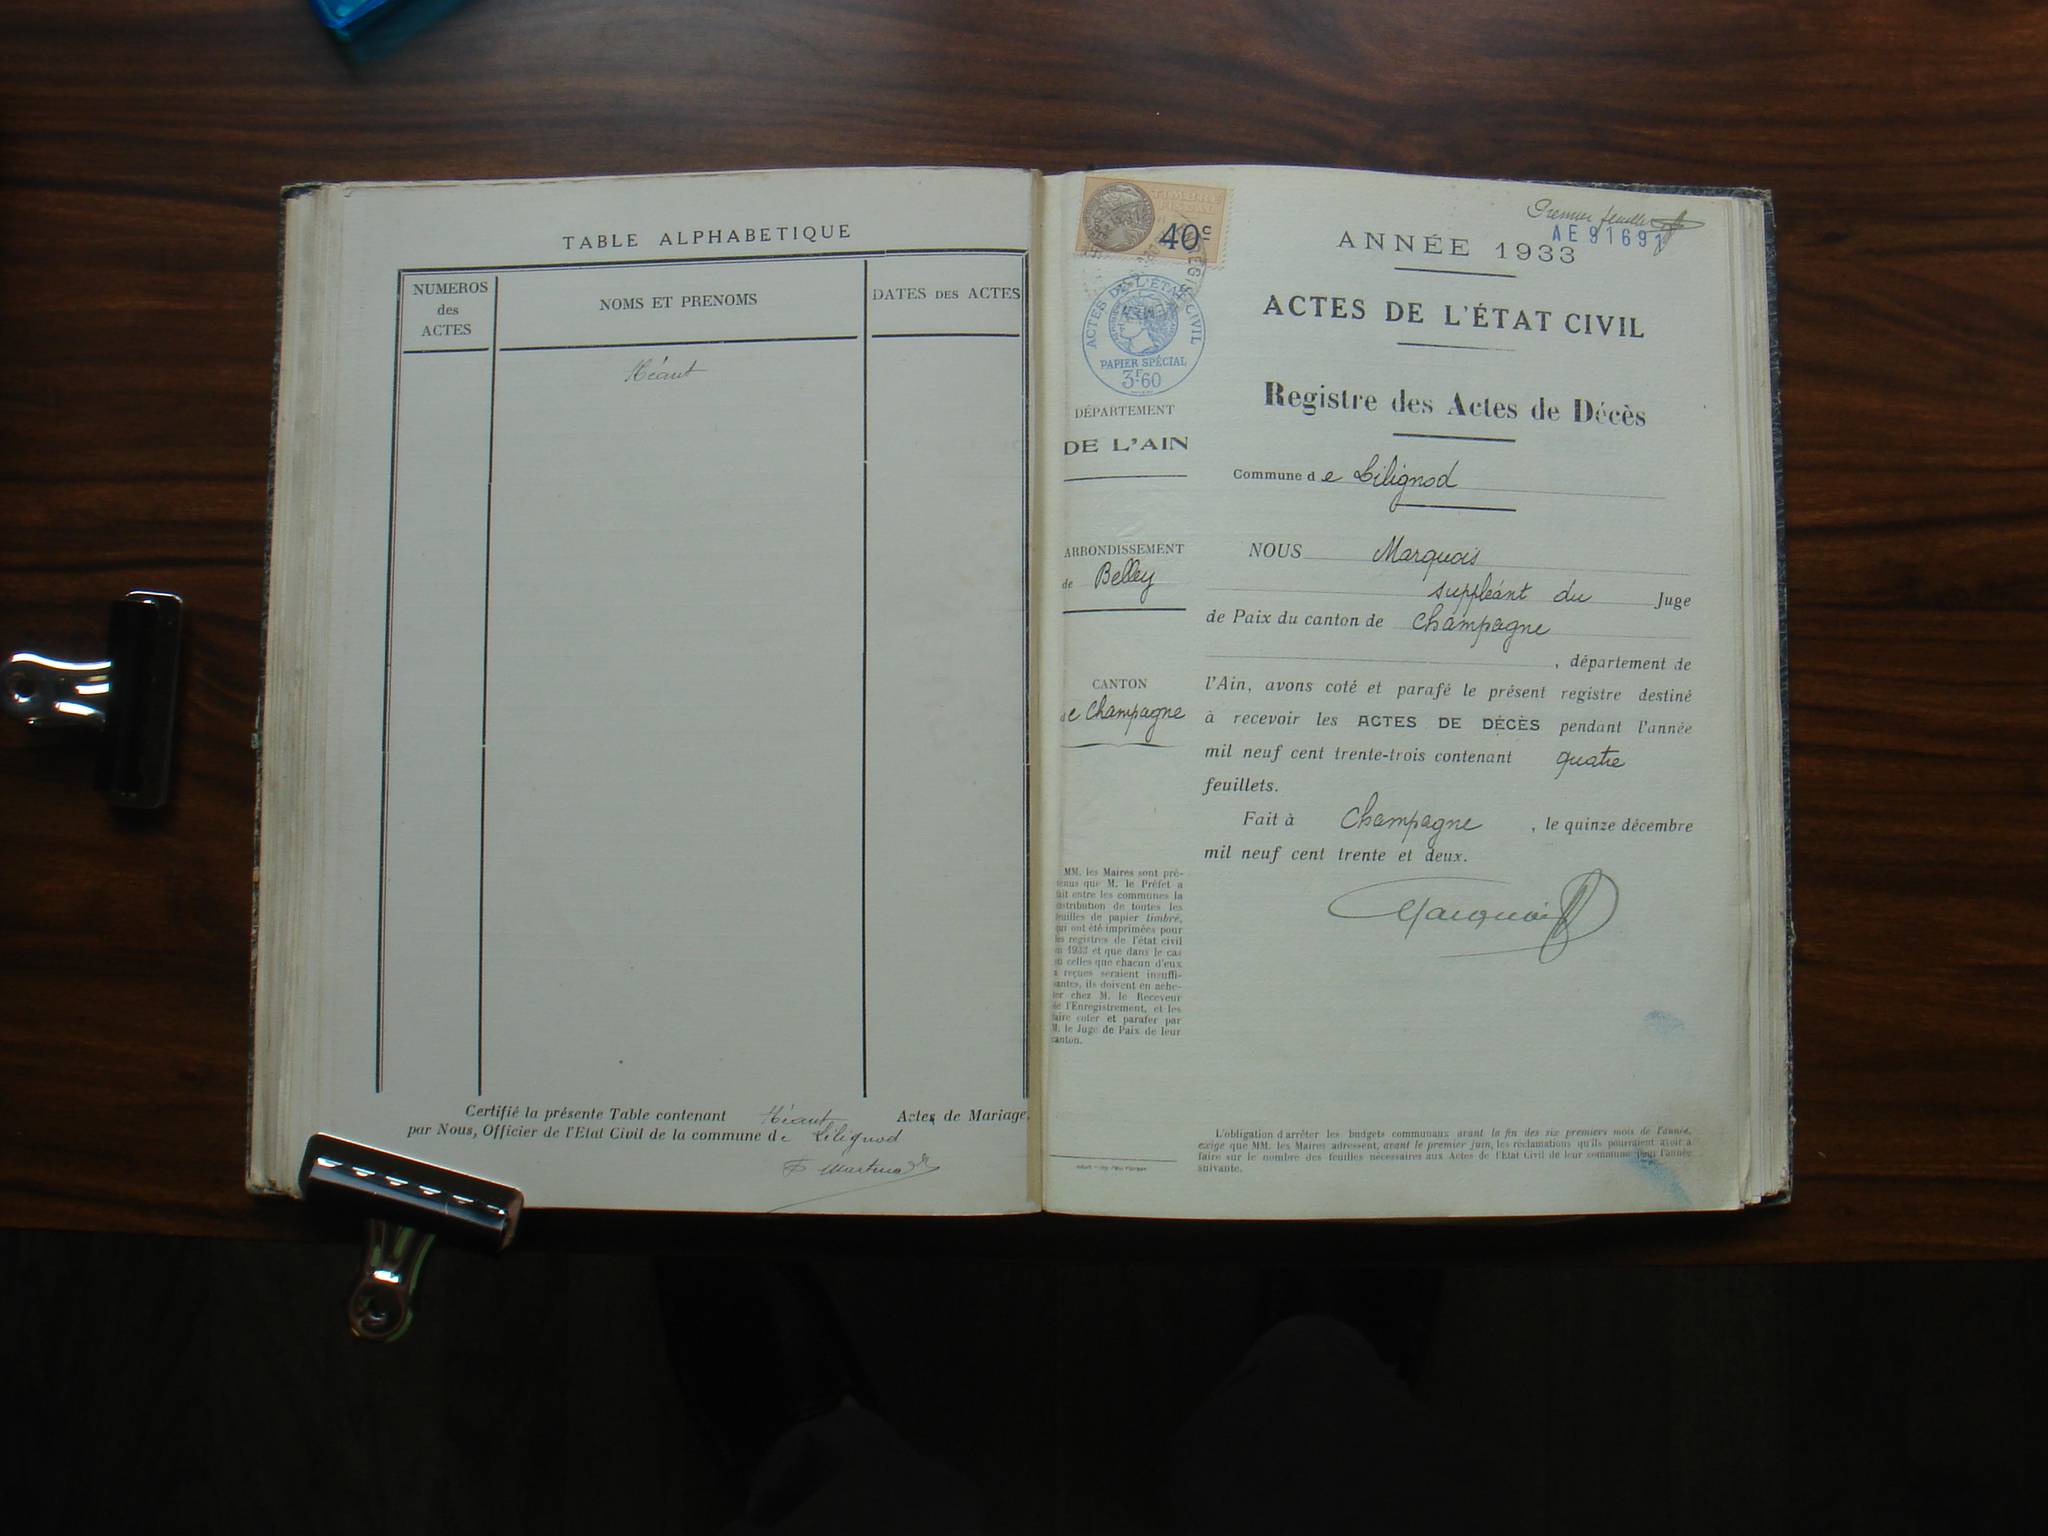 TABLE ALPHABETIQUE
NUMEROS
des
ACTES
NOMS ET PRENOMS
DATES DES ACTES
Néant
Certifié la présente Table contenant Néant Actes de Mariage,
par Nous, Officier de l'Etat Civil de la commune de Lilignod
Premier feuillet
AE91691
40c
ACTES DE L'ÉTAT CIVIL
PAPIER SPÉCIAL
3F60
ANNÉE 1933
ACTES DE L'ÉTAT CIVIL
Registre des Actes de Décès
DÉPARTEMENT
DE L'AIN
Commune de Lilignod
ARRONDISSEMENT
de Belley
CANTON
de Champagne
NOUS Marquois
suppléant du Juge
de Paix du canton de Champagne
, département de
l'Ain, avons coté et parafé le présent registre destiné
à recevoir les ACTES DE DÉCÈS pendant l'année
mil neuf cent trente-trois contenant quatre
feuillets.
Fait à Champagne , le quinze décembre
mil neuf cent trente et deux.
Marquois
MM. les Maires sont pré-
venus que M. le Préfet a
fait entre les communes la
distribution de toutes les
feuilles de papier timbré,
qui ont été imprimées pour
les registres de l'état civil
en 1933 et que dans le cas
où celles que chacun d'eux
a reçues seraient insuffi-
santes, ils doivent en ache-
ter chez M. le Receveur
de l'Enregistrement, et les
faire coter et parafer par
M. le Juge de Paix de leur
canton.
L'obligation d'arrêter les budgets communaux avant la fin des six premiers mois de l'année,
exige que MM. les Maires adressent, avant le premier juin, les réclamations qu'ils pourraient avoir à
faire sur le nombre des feuilles nécessaires aux Actes de l'Etat Civil de leur commune pour l'année
suivante.